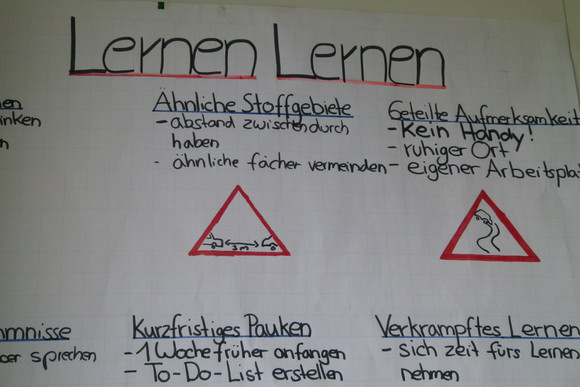 Lernen Lernen
Ähnliche Stoffgebiete
- abstand zwischendurch
haben
- ähnliche fächer vermeinden
3m
Geteilte Aufmerksamkeit
- Kein Handy!
- ruhiger Ort
- eigener Arbeitspla
sprechen
Kurzfristiges Pauken
- 1 Woche früher anfangen
- To-Do-List erstellen
Verkrampftes Lernen
- sich zeit fürs Lernen
nehmen